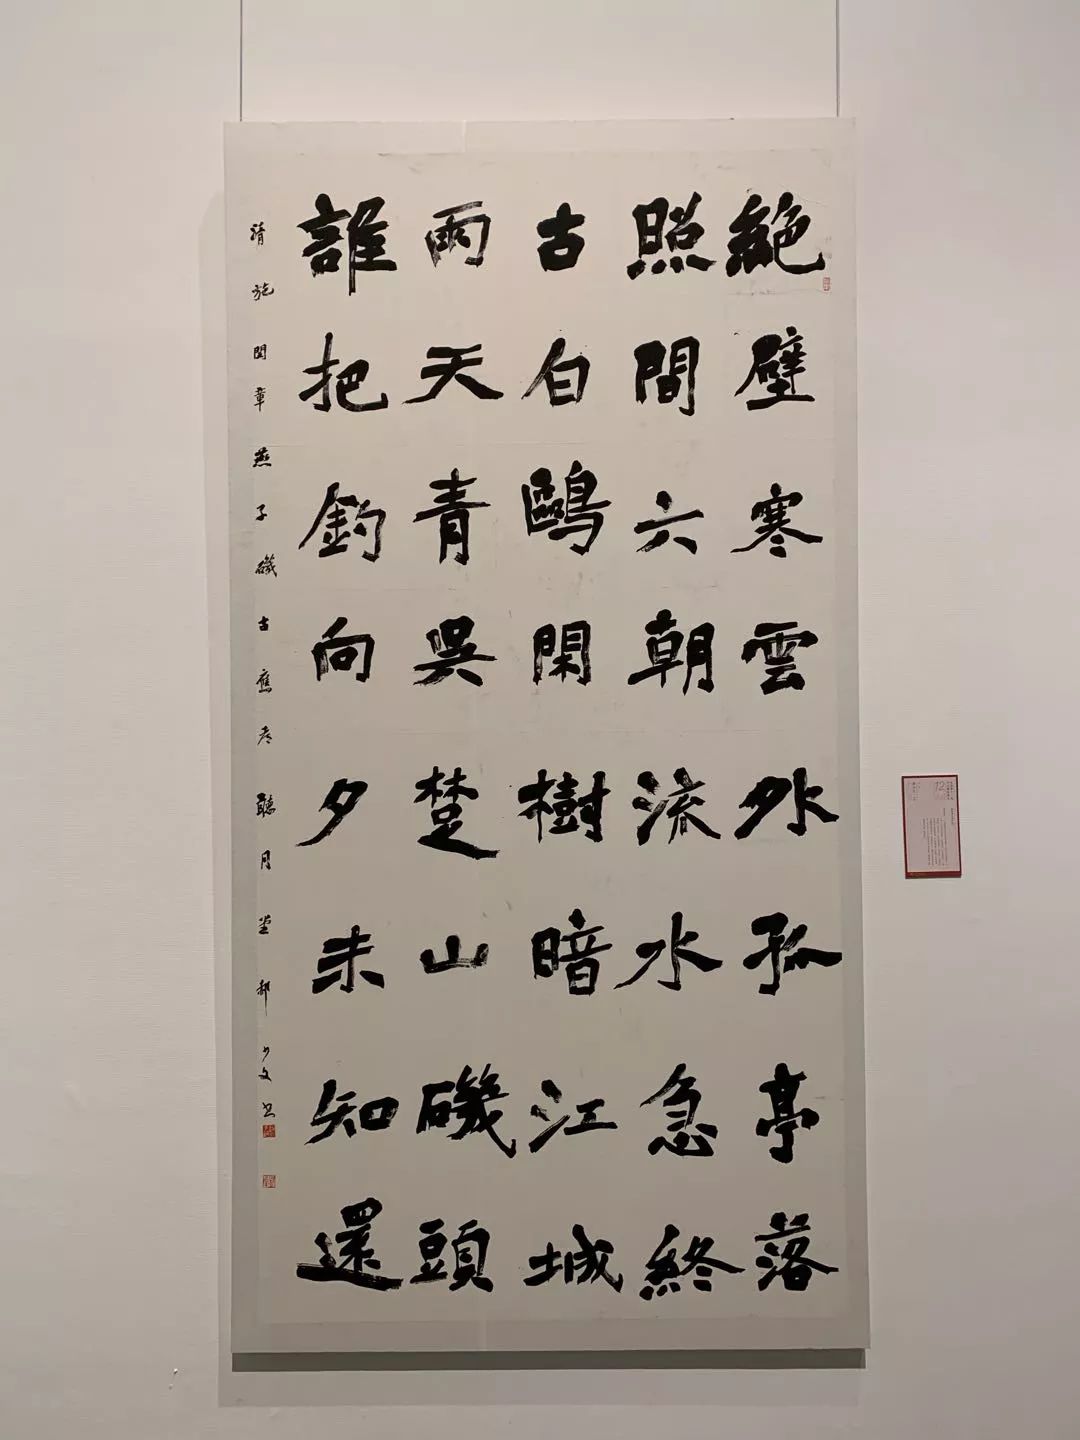 絶壁寒雲外孤亭落
照間六朝流水急終
古白鷗閑樹暗江城
雨天青吳楚山磯頭
誰把釣向夕未知還
清施閏章燕子磯古應聽月堂郝少文书
12